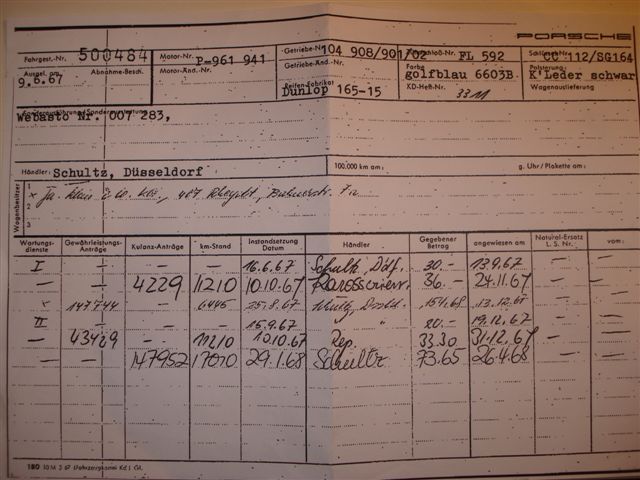 PORSCHE
Fahrgest.-Nr. 500484 Motor-Nr. P-961 941 Getriebe-Nr. 104 908/901/02 FL 592 CC 112/SG164
Ausgel. am 9.6.67 Abnahme-Besch. Motor-Änd.-Nr. Getriebe-Änd.-Nr. Farbe golfblau 6603B Polsterung: K'Leder schwar
Reifen-Fabrikat Dunlop 165-15 KD-Heft-Nr. 3311 Wagenauslieferung
Webasto Nr. 007 283,
Händler: Schultz, Düsseldorf 100.000 km am: g. Uhr / Plakette am:
Wagenbesitzer
1
2
3
Wartungsdienste Gewährleistungs-Anträge Kulanz-Anträge km-Stand Instandsetzung Datum Händler Gegebener Betrag angewiesen am Natural-Ersatz L. S. Nr. vom:
I — — — 16.6.67 Schultz, Ddf. 30.— 13.9.67 — —
— — 4229 11210 10.10.67 36.— 24.11.67 — —
x 147744 — 6445 25.8.67 154.68 13.12.67 — —
II — — — 15.9.67 " " 20.— 19.12.67 — —
— 43429 — 11210 10.10.67 Rep. 33.30 31.12.67 — —
— — 147952 17070 29.1.68 Schultz 73.65 26.4.68 — —
180 10 M 3 67